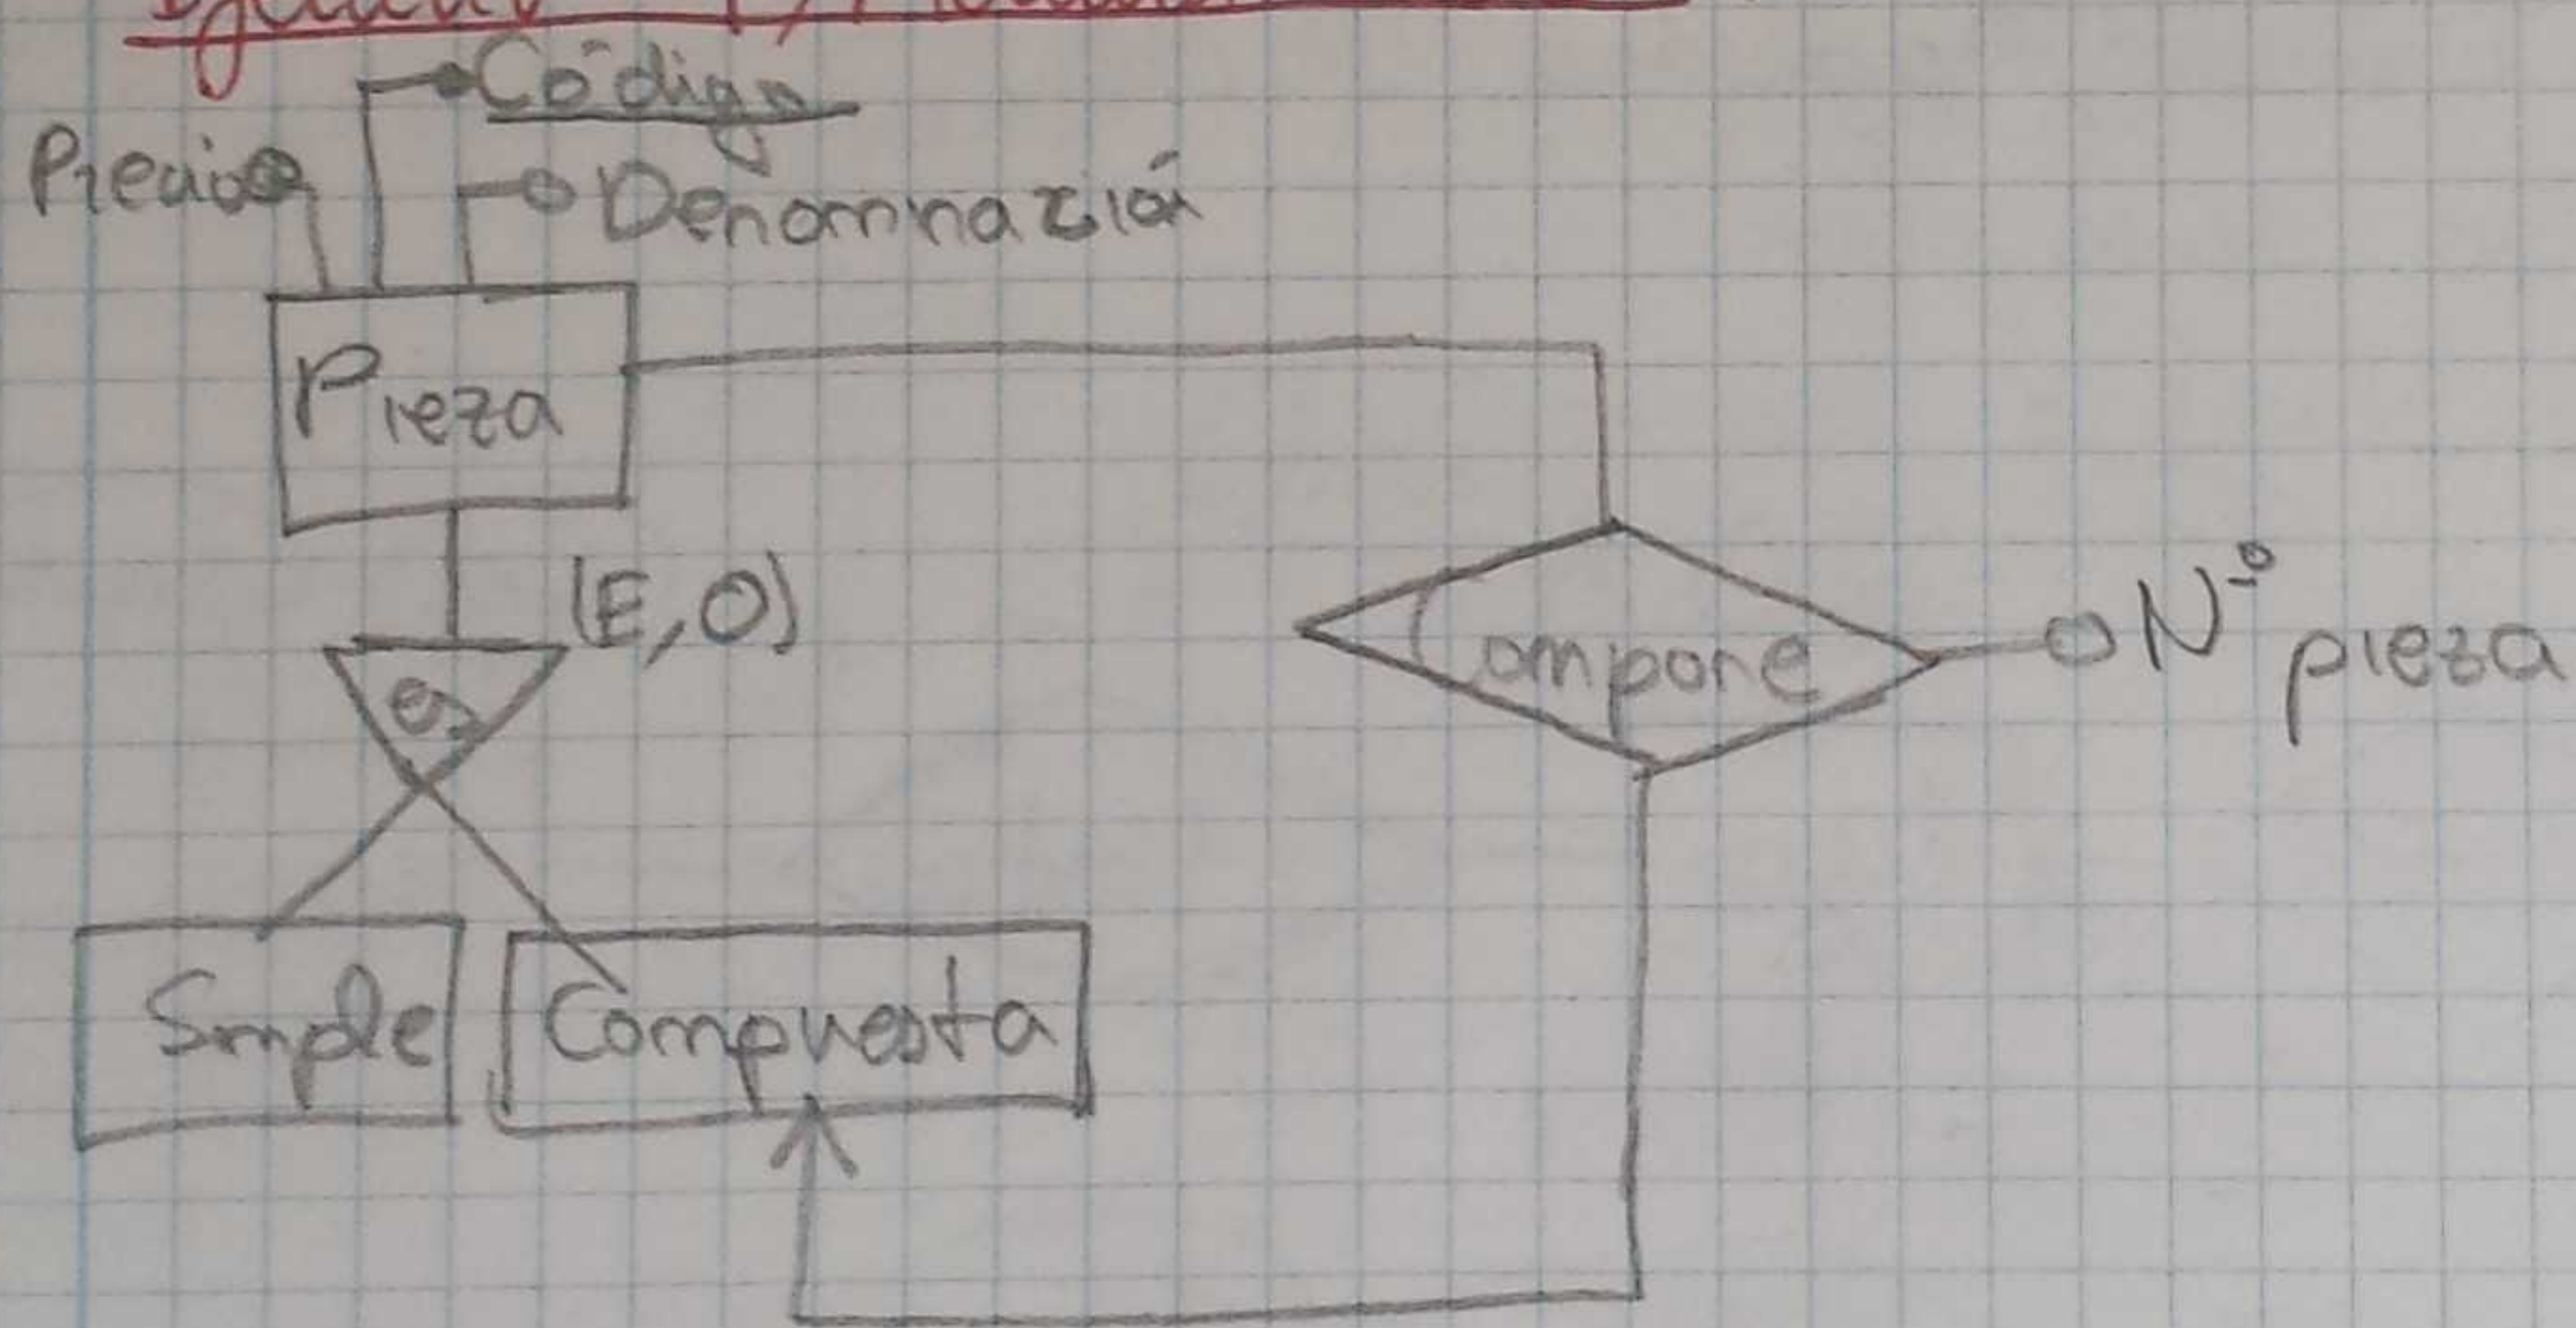 Código
Precio
Denominación
Pieza
(E,O)
es
Compone
Nº
pieza
Simple
Compuesta